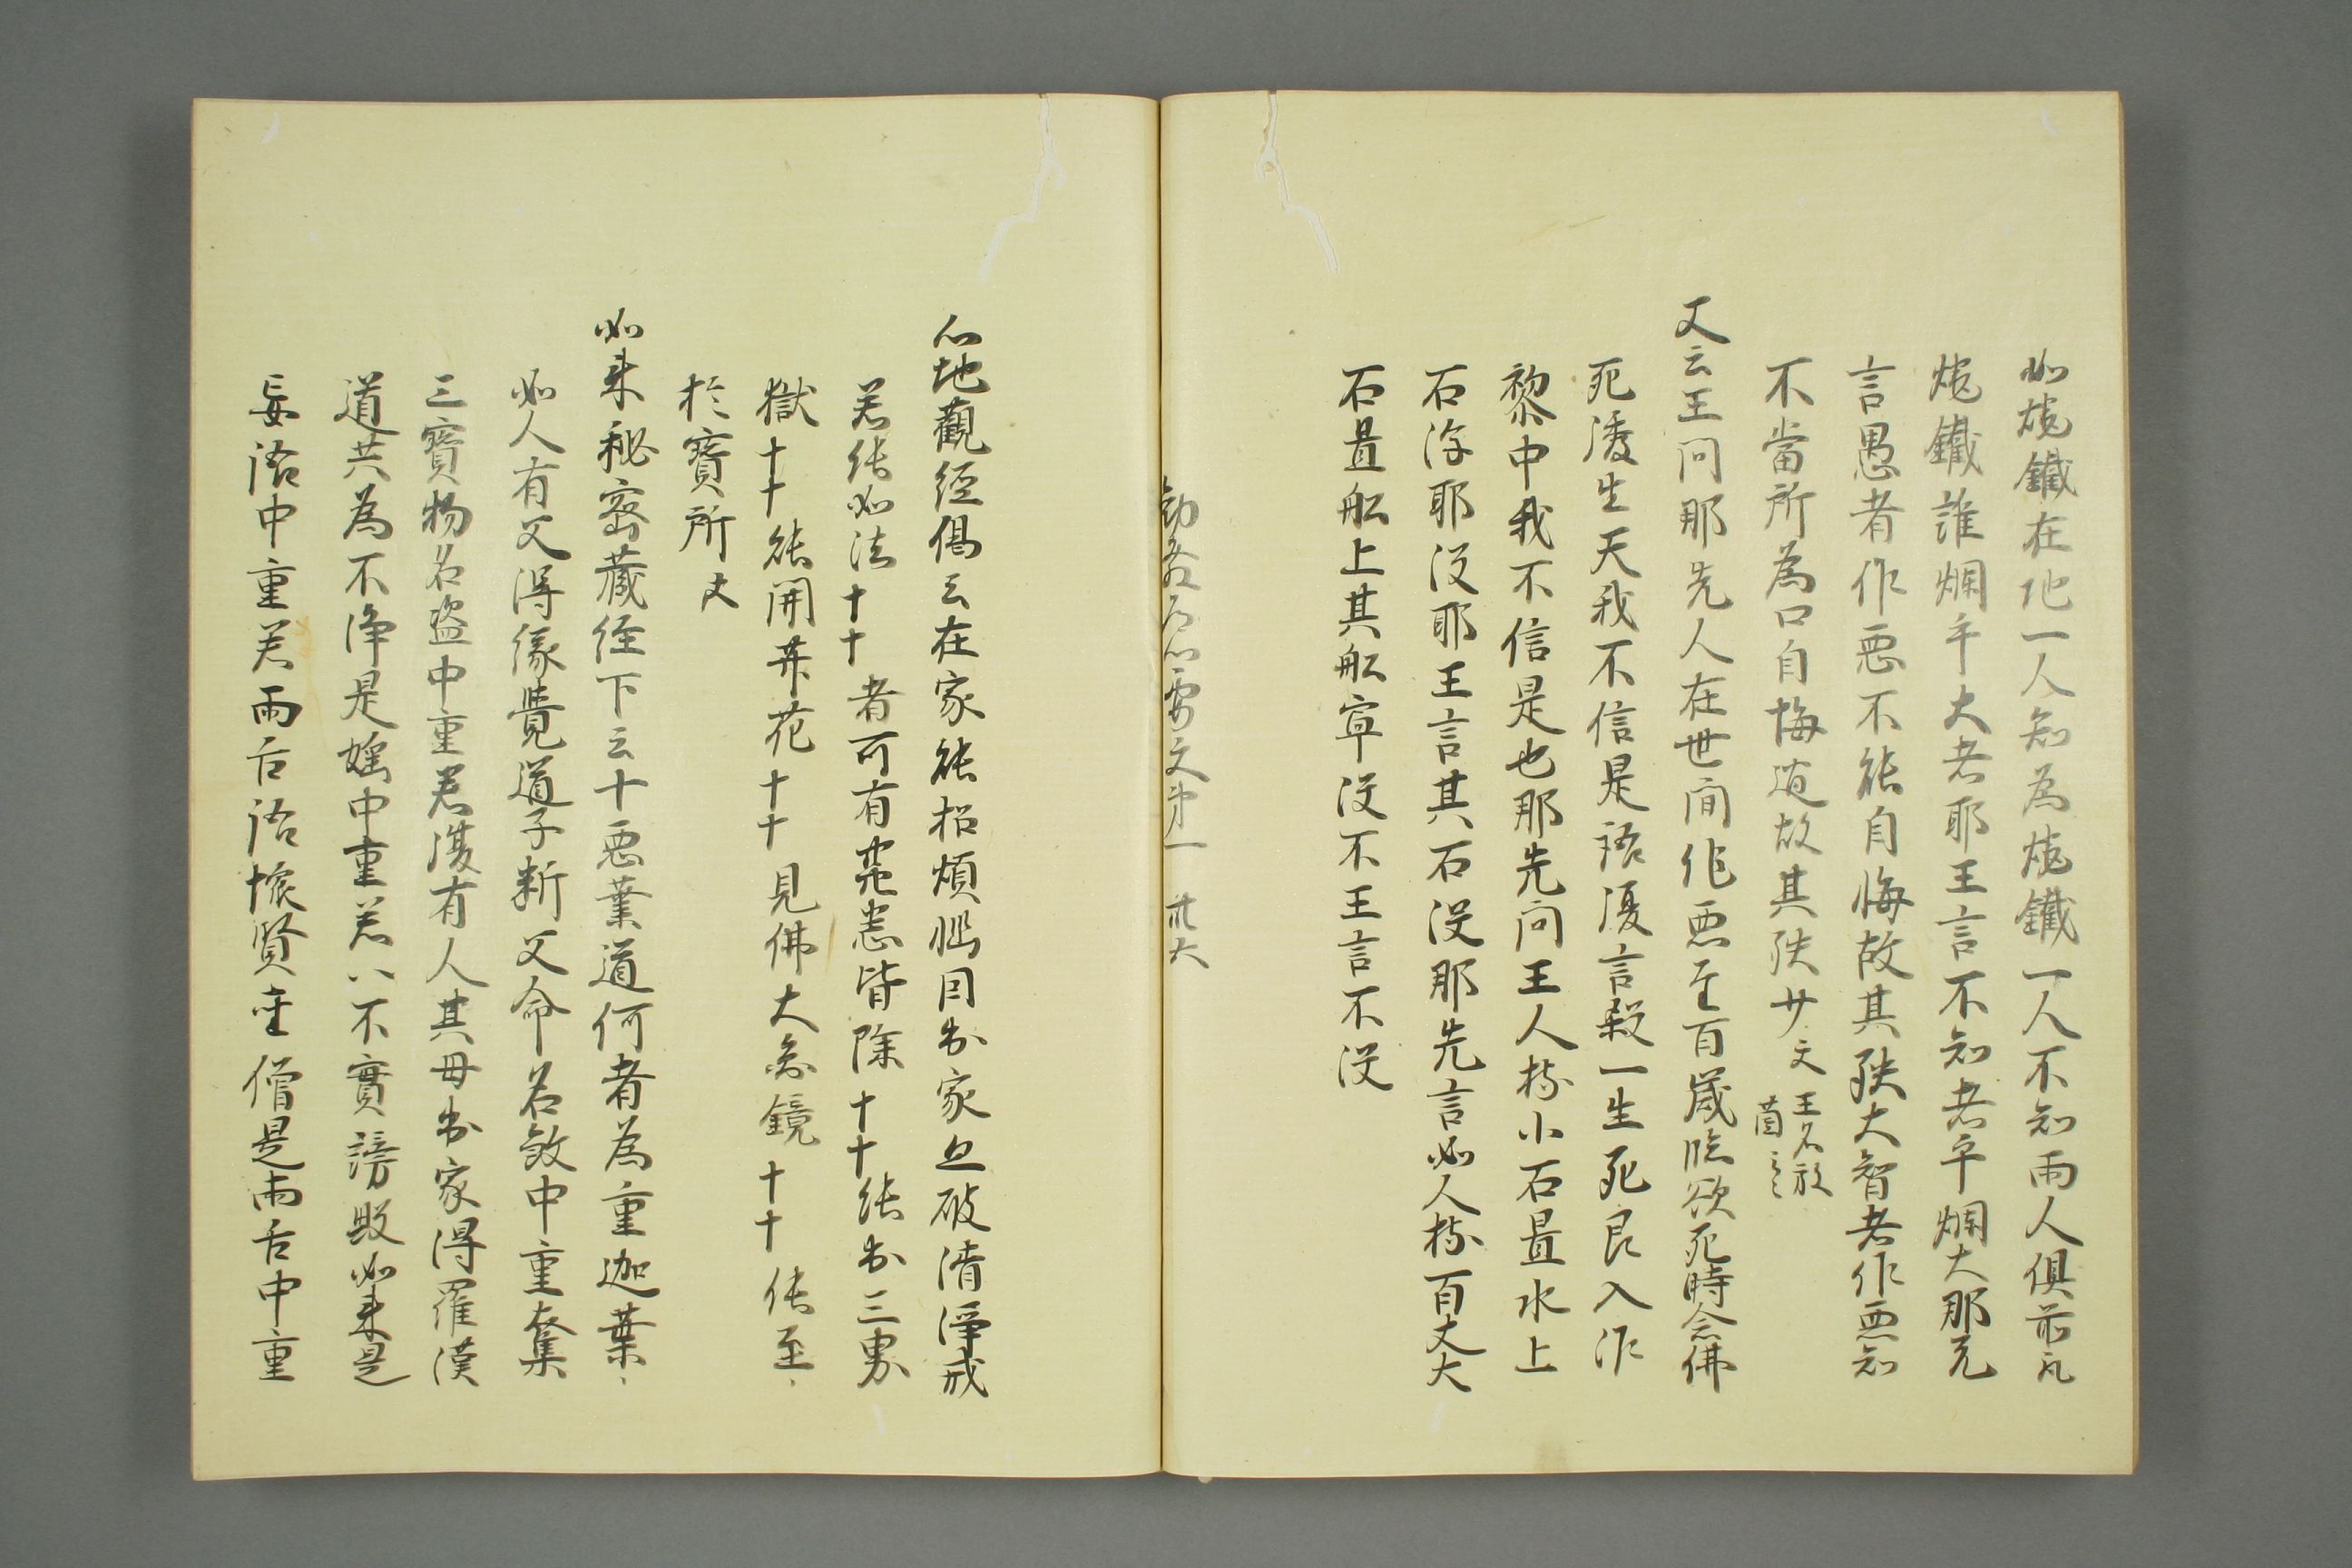 如燒鐵在地一人知為燒鐵一人不知兩人俱前取
燒鐵誰爛手大者耶王言不知者手爛大那先
言愚者作惡不能自悔故其殃大智者作惡知
不當所為日自悔過故其殃少文王名弥
蘭云云
又云王问那先人在世間作惡至百歲臨欲死時念佛
死後生天我不信是語復言殺一生死即入泥
黎中我不信是也那先问王人持小石置水上
石浮耶没耶王言其石没那先言如人持百丈大
石置舩上其舩寧没不王言不没
勸善 心要文第一 卅六
心地觀經偈云在家能招煩惱因出家亦破清淨戒
若能如法十十者可有罪悉皆除十十能出三界
獄十十能開菩花十十見佛大圓鏡十十能至、
於寶所文
如来秘密藏経下云十悪業道何者為重迦葉、
如人有父得縁覺道子断父命名殺中重奪
三寶物名盗中重若復有人其母出家得羅漢
道共為不淨是婬中重若以不實謗毀如来是
妄語中重若兩舌語懐賢圣僧是兩舌中重